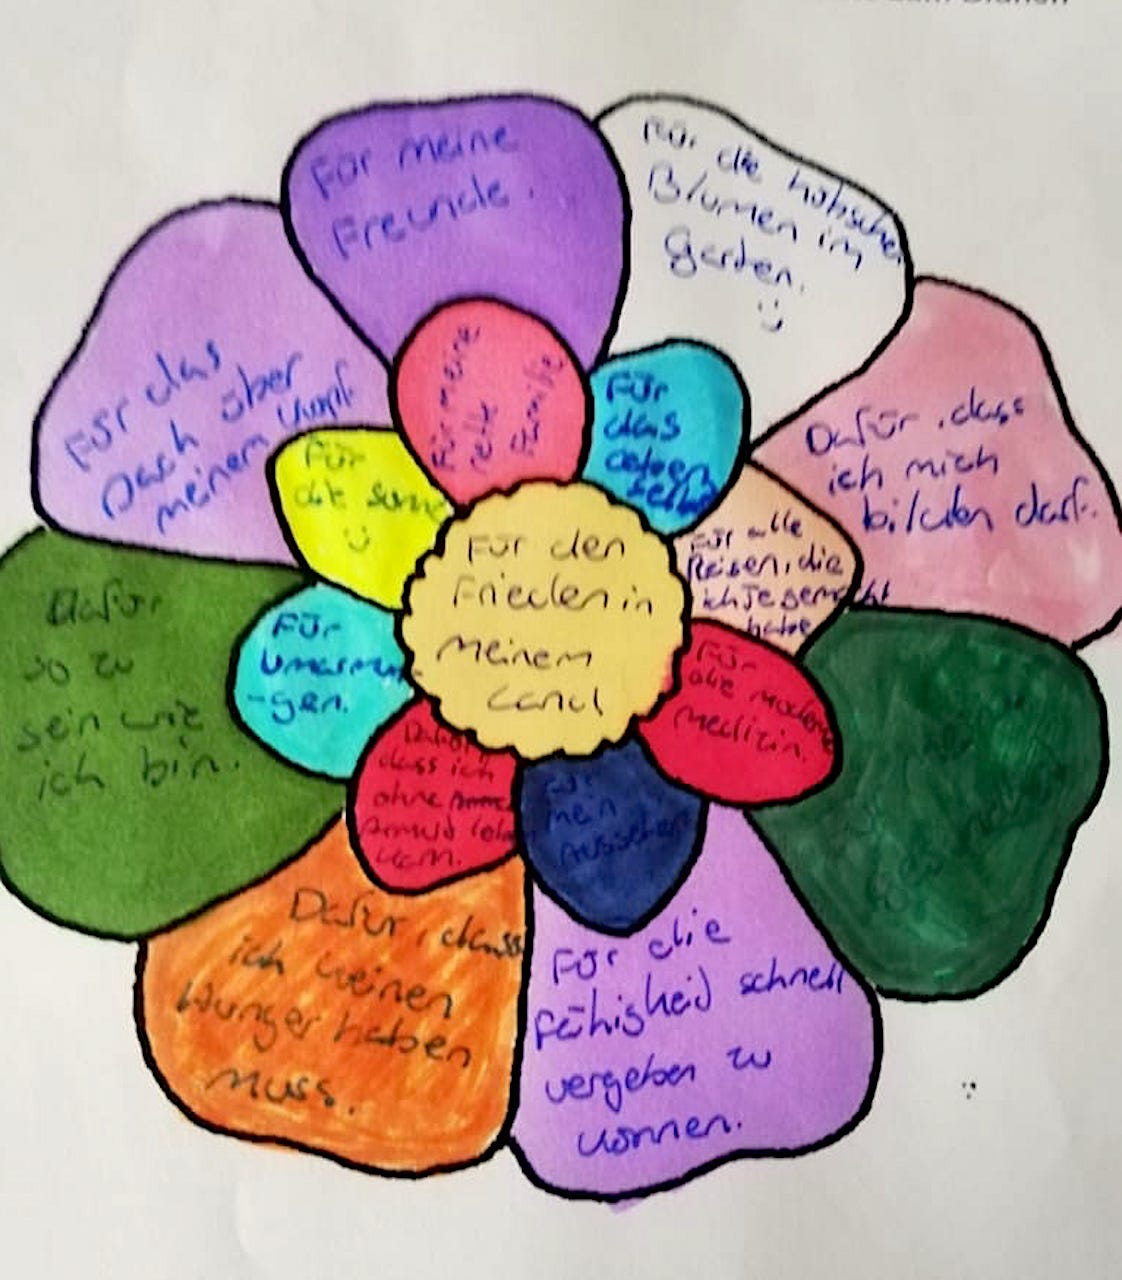 Für meine
Freunde.
Für die hübschen
Blumen im
Garten.
:)
Dafür, dass
ich mich
bilden darf.
Für die
Fähigkeid schnell
vergeben zu
können.
Dafür, dass
ich keinen
Hunger haben
muss.
Dafür
so zu
sein wie
ich bin.
Für das
Dach über
meinem Kopf.
Für meine
nette
Familie
Für
das
Für alle
Reisen, die
ich je gemacht
habe
Für
die moderne
Medizin.
Für
mein
Aussehen
Dafür,
dass ich
ohne
Armud leben
kann.
Für
Umarmun
-gen.
Für
die Sonne
:)
Für den
Frieden in
meinem
Land